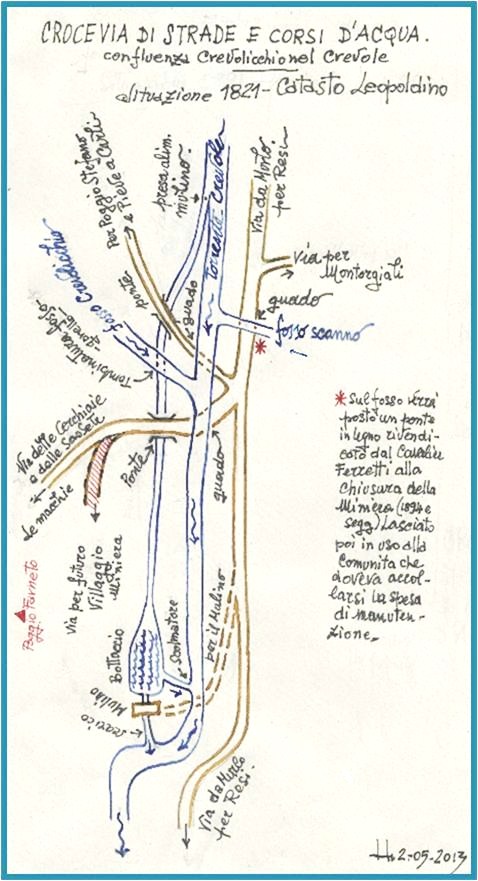 CROCEVIA DI STRADE E CORSI D'ACQUA.
confluenza Crevolicchio nel Crevole
situazione 1821 - Catasto Leopoldino
Per Poggio Stefano
e Pieve a Carli
presa alim.
mulino.
Torrente Crevole
Via da Murlo
per Resi
Via per
Montorgiali
guado
fosso scanno
fosso Crevolicchio
ponte
guado
Tombinatura
Via delle Cerchiaie
e delle
Le macchie
Ponte
guado
Poggio Farneto
via per futuro
Villaggio
Miniera
Bottaccio
Scolmatore
per il Mulino
Mulino
scarico
Via da Murlo
per Resi.
* Sul fosso verrà
posto un ponte
in legno rivendi-
cato dal Cavalier
Ferretti alla
Chiusura della
Miniera (1894 e
segg.) Lasciato
poi in uso alla
Comunità che
doveva accol-
larsi la spesa
di manuten-
zione.
2-05-2013